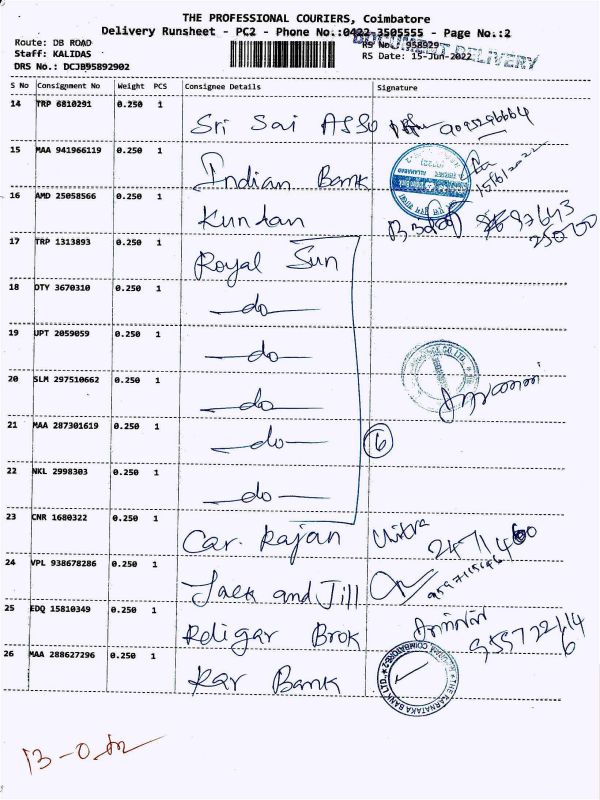 THE PROFESSIONAL COURIERS, Coimbatore
Delivery Runsheet - PC2 - Phone No.:0422 3505555 - Page No.:2
DOCUMENT DELIVERY
Route: DB ROAD
RS No.: 958929
Staff: KALIDAS
RS Date: 15-Jun-2022
DRS No.: DCJB95892902
S No Consignment No Weight PCS Consignee Details Signature
14 TRP 6810291 0.250 1 Sri Sai ASSO
15 MAA 941966119 0.250 1 Indian Bank 15/6/2022
16 AMD 25058566 0.250 1 Kundan
17 TRP 1313893 0.250 1 Royal Sun
18 OTY 3670310 0.250 1 do
19 UPT 2059059 0.250 1 do
20 SLM 297510662 0.250 1 do
21 MAA 287301619 0.250 1 do 6
22 NKL 2998303 0.250 1 do
23 CNR 1680322 0.250 1 Car. Rajan
24 VPL 938678286 0.250 1 Jack and Jill
25 EDQ 15810349 0.250 1 Religar Brok
26 MAA 288627296 0.250 1 Kar Bank
THE KARNATAKA BANK LTD.